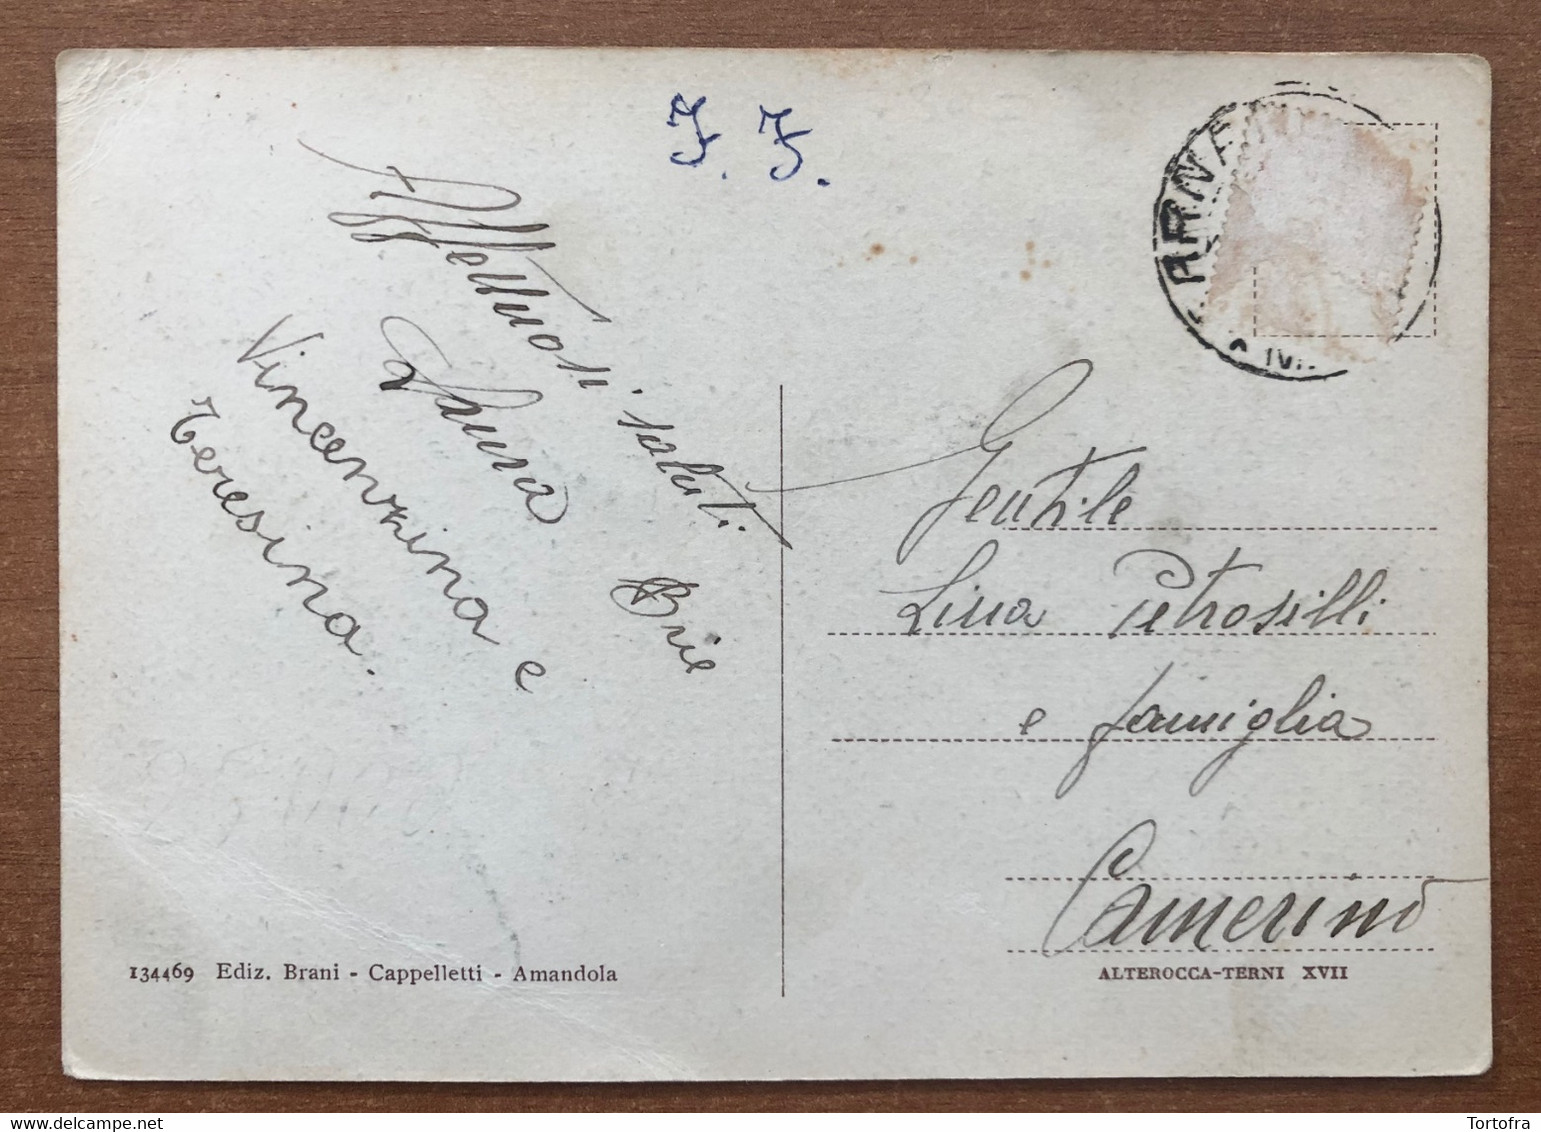 Affettuosi saluti
Laura
Vincenzina e
Teresina.
Gentile
Lina Petrosilli
e famiglia
Camerino
134469 Ediz. Brani - Cappelletti - Amandola
ALTEROCCA-TERNI XVII
Tortofra